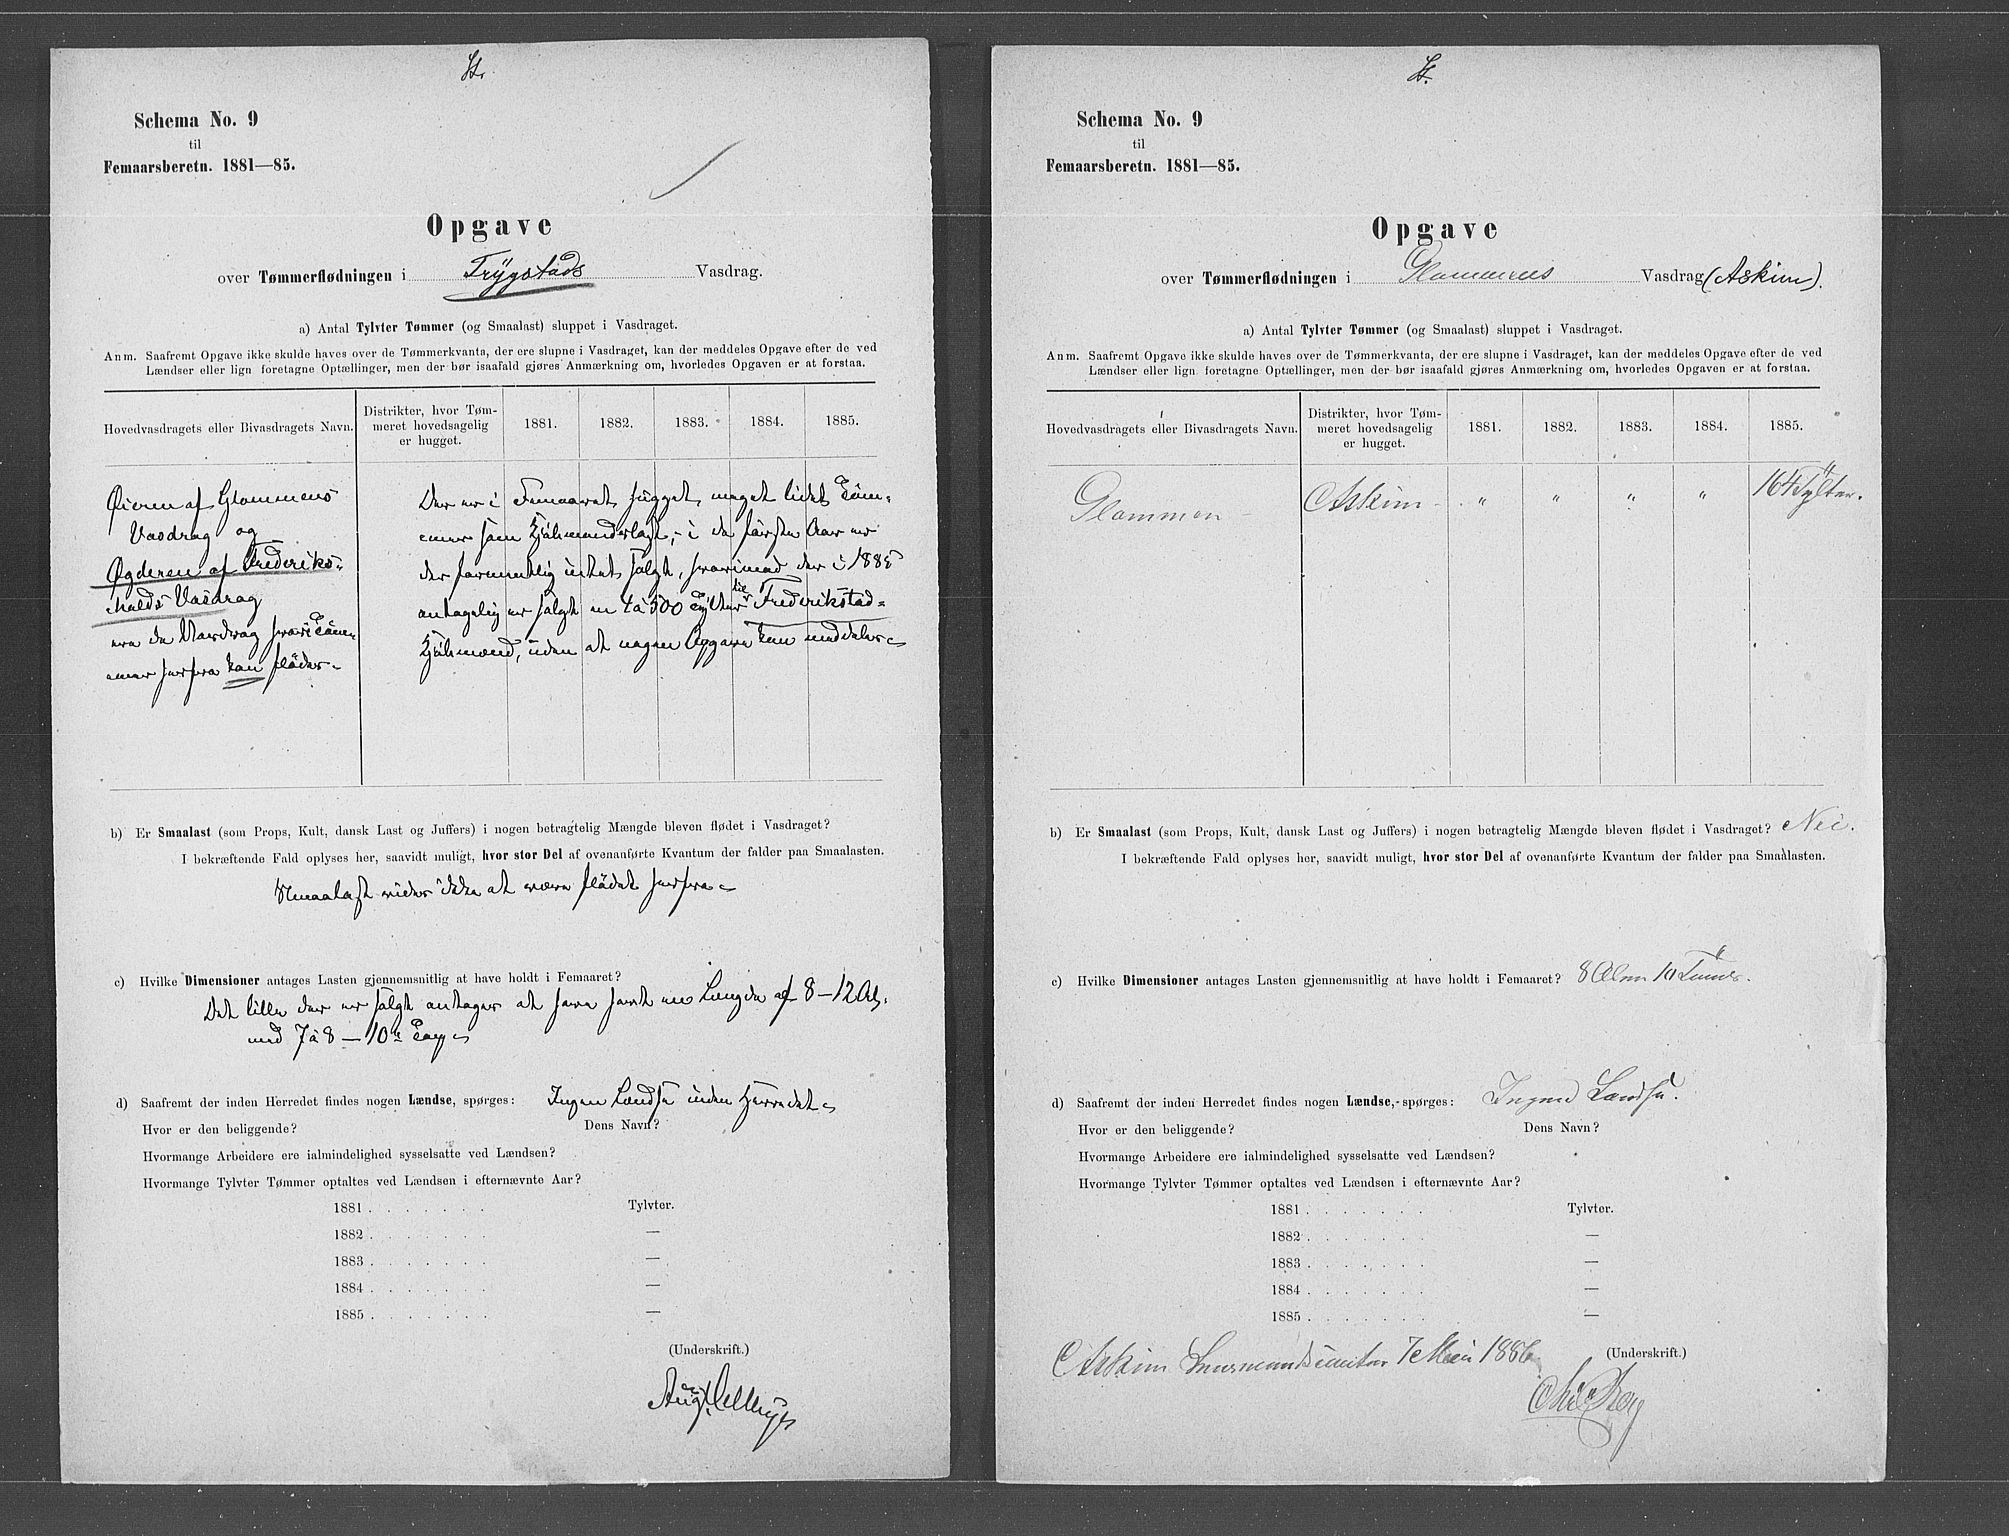 Schema No. 9
til
Femaarsberetn. 1881—85.
Opgave
over Tømmerflødningen i Trygstads Vasdrag.
a) Antal Tylvter Tømmer (og Smaalast) sluppet i Vasdraget.
Anm. Saafremt Opgave ikke skulde haves over de Tømmerkvanta, der ere slupne i Vasdraget, kan der meddeles Opgave efter de ved
Lændser eller lign foretagne Optællinger, men der bør isaafald gjøres Anmærkning om, hvorledes Opgaven er at forstaa.
Hovedvasdragets eller Bivasdragets Navn.
Distrikter, hvor Tøm-
meret hovedsagelig
er hugget.
1881. 1882. 1883. 1884. 1885.
Øieren af Glommens
Vasdrag og
Øgderen af Frederiks-
halds Vasdrag
ere de Vasdrag hvori Töm-
mer herfra kan flödes
Der er i Femaaret hugget meget lidet Töm-
mer som Kjöbmandslast, i de första Aar er
der formentlig intet solgt, hvorimod der i 1885
antagelig er solgt en 4 à 500 Tylter til Frederikstad-
Kjöbmænd, uden at nogen Opgave kan meddeles
b) Er Smaalast (som Props, Kult, dansk Last og Juffers) i nogen betragtelig Mængde bleven flødet i Vasdraget?
I bekræftende Fald oplyses her, saavidt muligt, hvor stor Del af ovenanførte Kvantum der falder paa Smaalasten.
Smaalast vides ikke at være flödet herfra
c) Hvilke Dimensioner antages Lasten gjennemsnitlig at have holdt i Femaaret?
Det lille der er solgt antages at have havt en Længde af 8 — 12 Al.
med 7 à 8 — 10" Top
d) Saafremt der inden Herredet findes nogen Lændse, spørges: Ingen Lændse inden Herredet
Hvor er den beliggende? Dens Navn?
Hvormange Arbeidere ere ialmindelighed sysselsatte ved Lændsen?
Hvormange Tylvter Tømmer optaltes ved Lændsen i efternævnte Aar?
1881 . . . . . . . Tylvter.
1882 . . . . . . . —
1883 . . . . . . . —
1884 . . . . . . . —
1885 . . . . . . . —
(Underskrift.)
Aug.
Schema No. 9
til
Femaarsberetn. 1881—85.
Opgave
over Tømmerflødningen i Glommens Vasdrag (Askim).
a) Antal Tylvter Tømmer (og Smaalast) sluppet i Vasdraget.
Anm. Saafremt Opgave ikke skulde haves over de Tømmerkvanta, der ere slupne i Vasdraget, kan der meddeles Opgave efter de ved
Lændser eller lign. foretagne Optællinger, men der bør isaafald gjøres Anmærkning om, hvorledes Opgaven er at forstaa.
Hovedvasdragets eller Bivasdragets Navn.
Distrikter, hvor Tøm-
meret hovedsagelig
er hugget.
1881. 1882. 1883. 1884. 1885.
Glommen - Askim - " " " " 164 Tylter.
b) Er Smaalast (som Props, Kult, dansk Last og Juffers) i nogen betragtelig Mængde bleven flødet i Vasdraget? Nei.
I bekræftende Fald oplyses her, saavidt muligt, hvor stor Del af ovenanførte Kvantum der falder paa Smaalasten.
c) Hvilke Dimensioner antages Lasten gjennemsnitlig at have holdt i Femaaret? 8 Alen 10 Tommer.
d) Saafremt der inden Herredet findes nogen Lændse, spørges: Ingen Lændse.
Hvor er den beliggende? Dens Navn?
Hvormange Arbeidere ere ialmindelighed sysselsatte ved Lændsen?
Hvormange Tylvter Tømmer optaltes ved Lændsen i efternævnte Aar?
1881 . . . . . . . Tylvter.
1882 . . . . . . . —
1883 . . . . . . . —
1884 . . . . . . . —
1885 . . . . . . . —
Askim Lensmandskontor 7 Mai 1886 (Underskrift.)
Berg